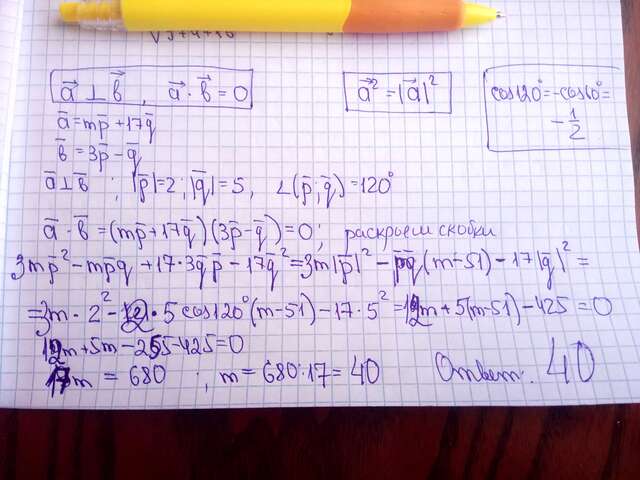 √3+4+16
a⃗ ⊥ b⃗, a⃗ · b⃗ = 0
a⃗² = |a⃗|²
cos120° = -cos60° =
-1/2
a̅ = mp̅ + 17q̅
b̅ = 3p̅ - q̅
a̅ ⊥ b̅; |p̅|=2; |q̅|=5, ∠(p̅; q̅)=120°
a̅ · b̅ = (mp̅ + 17q̅)(3p̅ - q̅) = 0; раскроем скобки
3mp̅² - mp̅q + 17·3q̅p̅ - 17q̅² = 3m|p̅|² - p̅q̅(m-51) - 17|q̅|² =
= 3m · 2² - 2 · 5 cos120°(m-51) - 17·5² = 12m + 5(m-51) - 425 = 0
12m + 5m - 255 - 425 = 0
17m = 680; m = 680:17 = 40
Ответ: 40